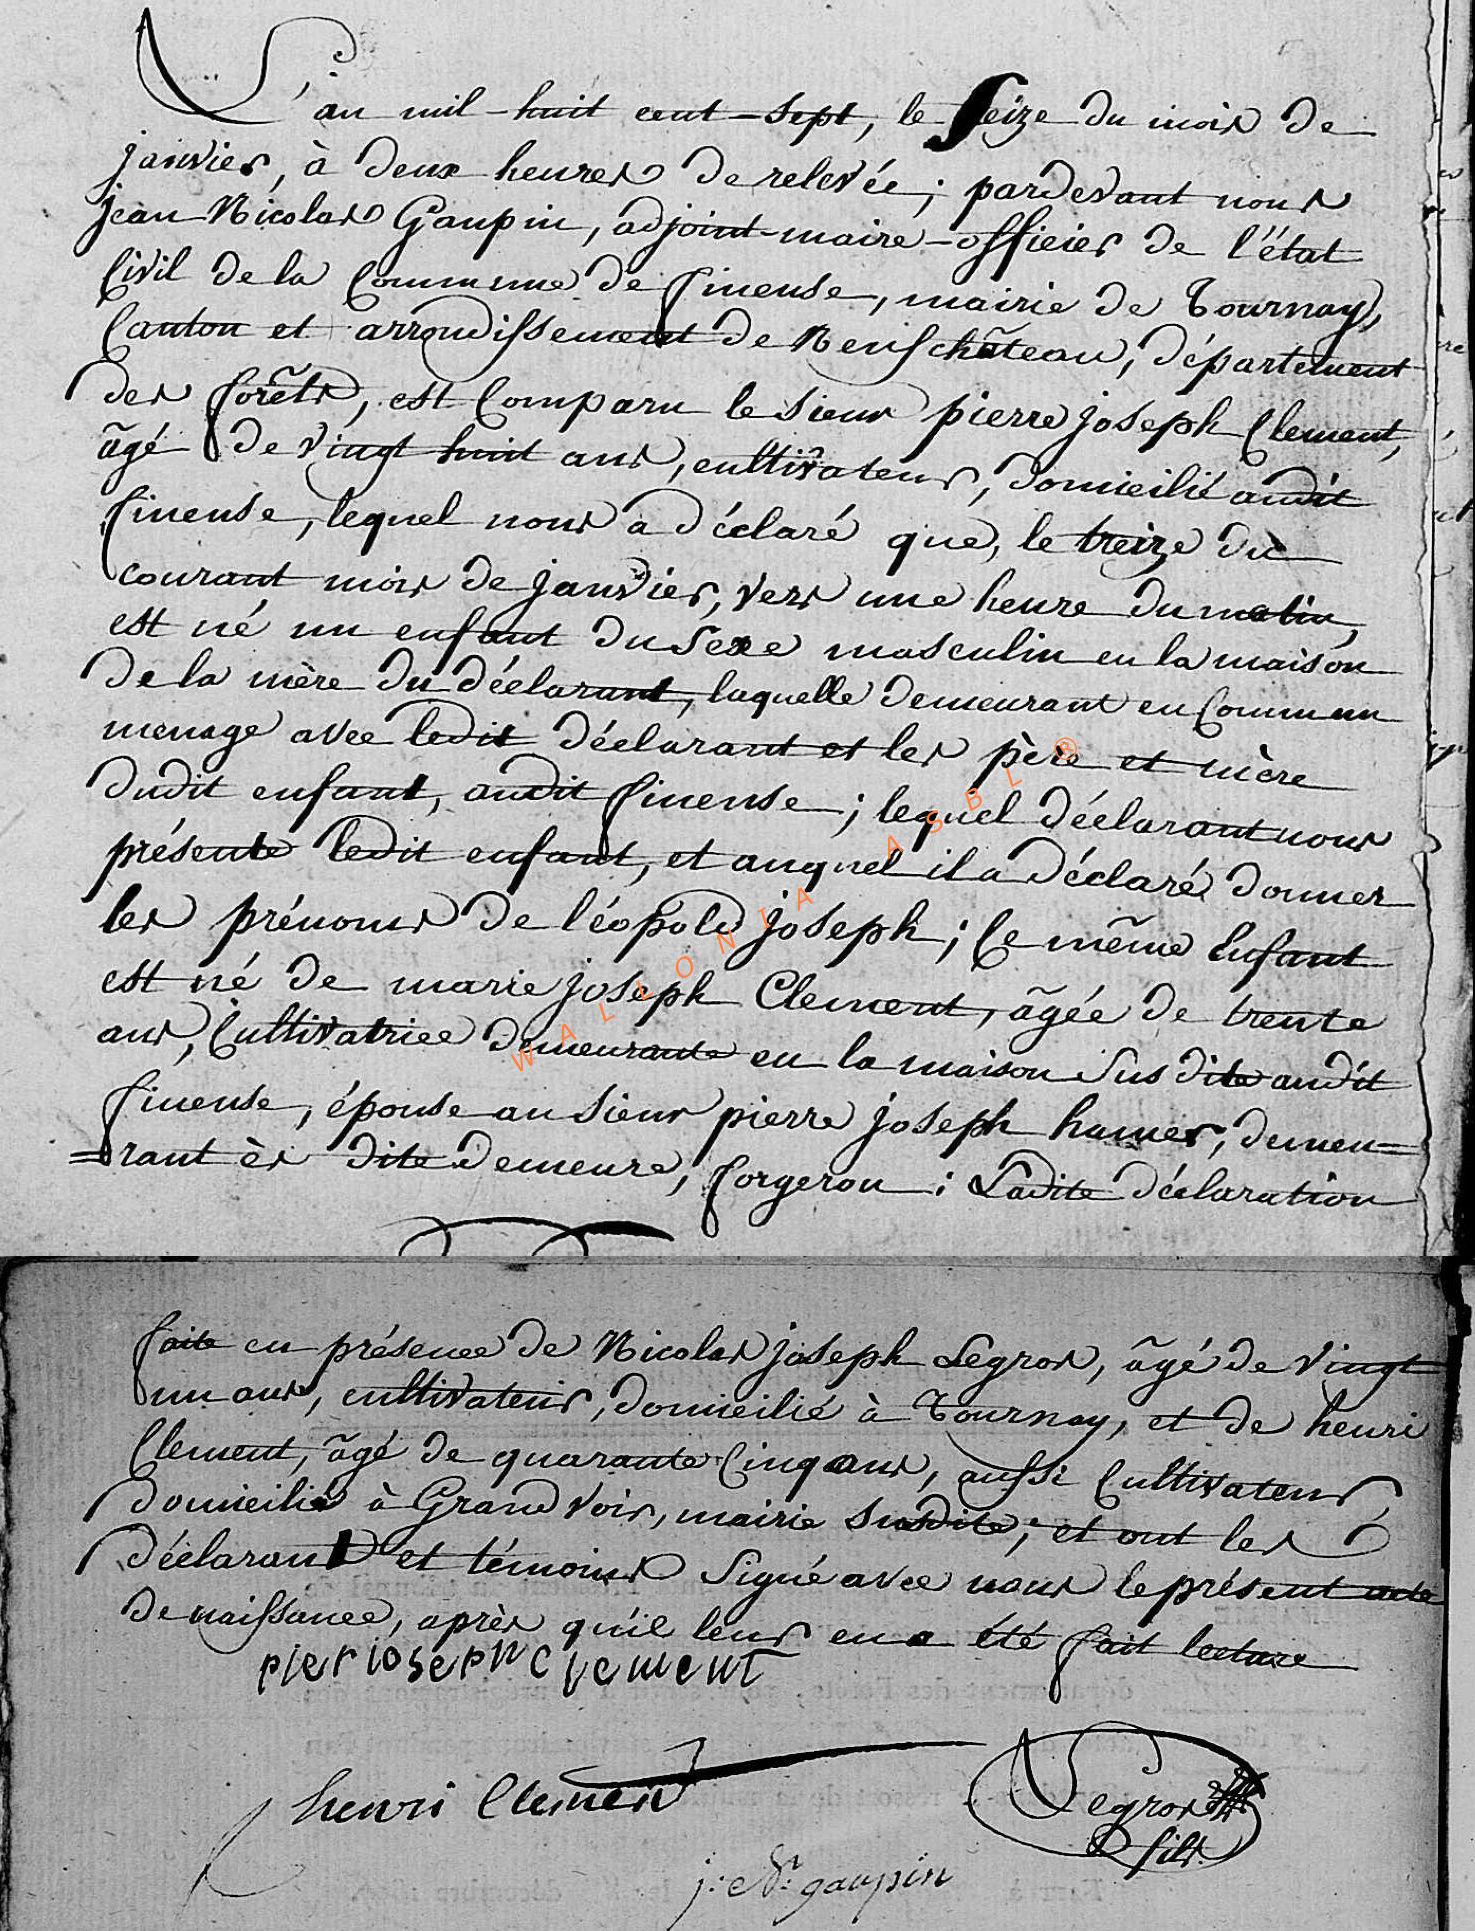 L'an mil-huit cent-sept, le Seize du mois de
janvier, à deux heures de relevée; pardevant nous
jean Nicolas Gaupin, adjoint-maire-officier de l'état
Civil de la Commune de fineuse, mairie de Tournay,
Canton et arrondissement de Neufchâteau, département
des forêts, est Comparu le sieur pierre joseph Clement,
âgé de vingt huit ans, cultivateur, domicilié audit
fineuse, lequel nous a déclaré que, le treize du
courant mois de janvier, vers une heure du matin,
est né un enfant du Sexe masculin en la maison
de la mère du déclarant, laquelle demeurant en Commun
menage avec ledit déclarant et les père et mère
dudit enfant, audit fineuse; lequel déclarant nous
présente ledit enfant, et auquel il a déclaré donner
les prénoms de léopold joseph; Ce même Enfant
est né de marie joseph Clement, âgée de trente
ans, Cultivatrice demeurante en la maison Susdite audit
fineuse, épouse au Sieur pierre joseph hamer, demeu=
=rant ès dite demeure, forgeron: Ladite déclaration
faite en présence de Nicolas joseph Legros, âgé de vingt
un ans, cultivateur, domicilié à Tournay, et de henri
Clement, âgé de quarante Cinq ans, aussi Cultivateur,
domicilié à Grandvoir, mairie Susdite; et ont les
déclarant et témoins Signé avec nous le présent acte
de naissance, après qu'il leur en a été fait lecture
pier ioseph clement
henri Clement
Legros
fils
j: N: gaupin
WALLONIA ASBL ®